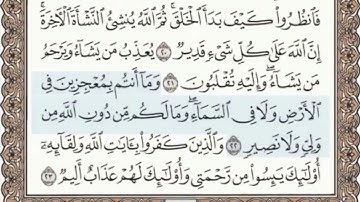 فَٱنظُرُوا۟ كَيْفَ بَدَأَ ٱلْخَلْقَ ۚ ثُمَّ ٱللَّهُ يُنشِئُ ٱلنَّشْأَةَ ٱلْـَٔاخِرَةَ ۚ
إِنَّ ٱللَّهَ عَلَىٰ كُلِّ شَىْءٍ قَدِيرٌ ٢٠ يُعَذِّبُ مَن يَشَآءُ وَيَرْحَمُ
مَن يَشَآءُ ۖ وَإِلَيْهِ تُقْلَبُونَ ٢١ وَمَآ أَنتُم بِمُعْجِزِينَ فِى
ٱلْأَرْضِ وَلَا فِى ٱلسَّمَآءِ ۖ وَمَا لَكُم مِّن دُونِ ٱللَّهِ مِن
وَلِىٍّ وَلَا نَصِيرٍ ٢٢ وَٱلَّذِينَ كَفَرُوا۟ بِـَٔايَـٰتِ ٱللَّهِ وَلِقَآئِهِۦٓ
أُو۟لَـٰٓئِكَ يَئِسُوا۟ مِن رَّحْمَتِى وَأُو۟لَـٰٓئِكَ لَهُمْ عَذَابٌ أَلِيمٌ ٢٣